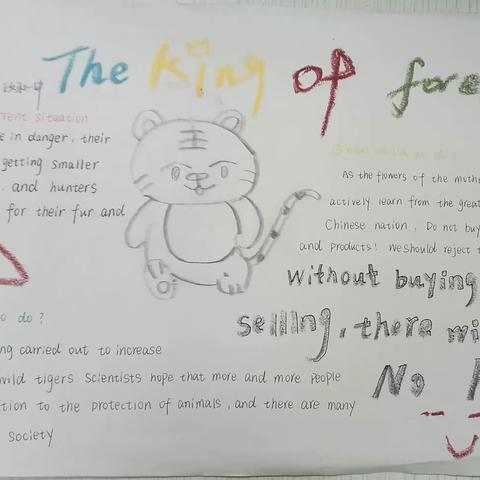 The King of fore
rent situation
e in danger, their
getting smaller
. and hunters
for their fur and
As the flowers of the mothe
actively learn from the great
Chinese nation. Do not buy
and products! We should reject t
without buying
selling, there wi
No
o do?
ng carried out to increase
wild tigers Scientists hope that more and more people
tion to the protection of animals, and there are many
society